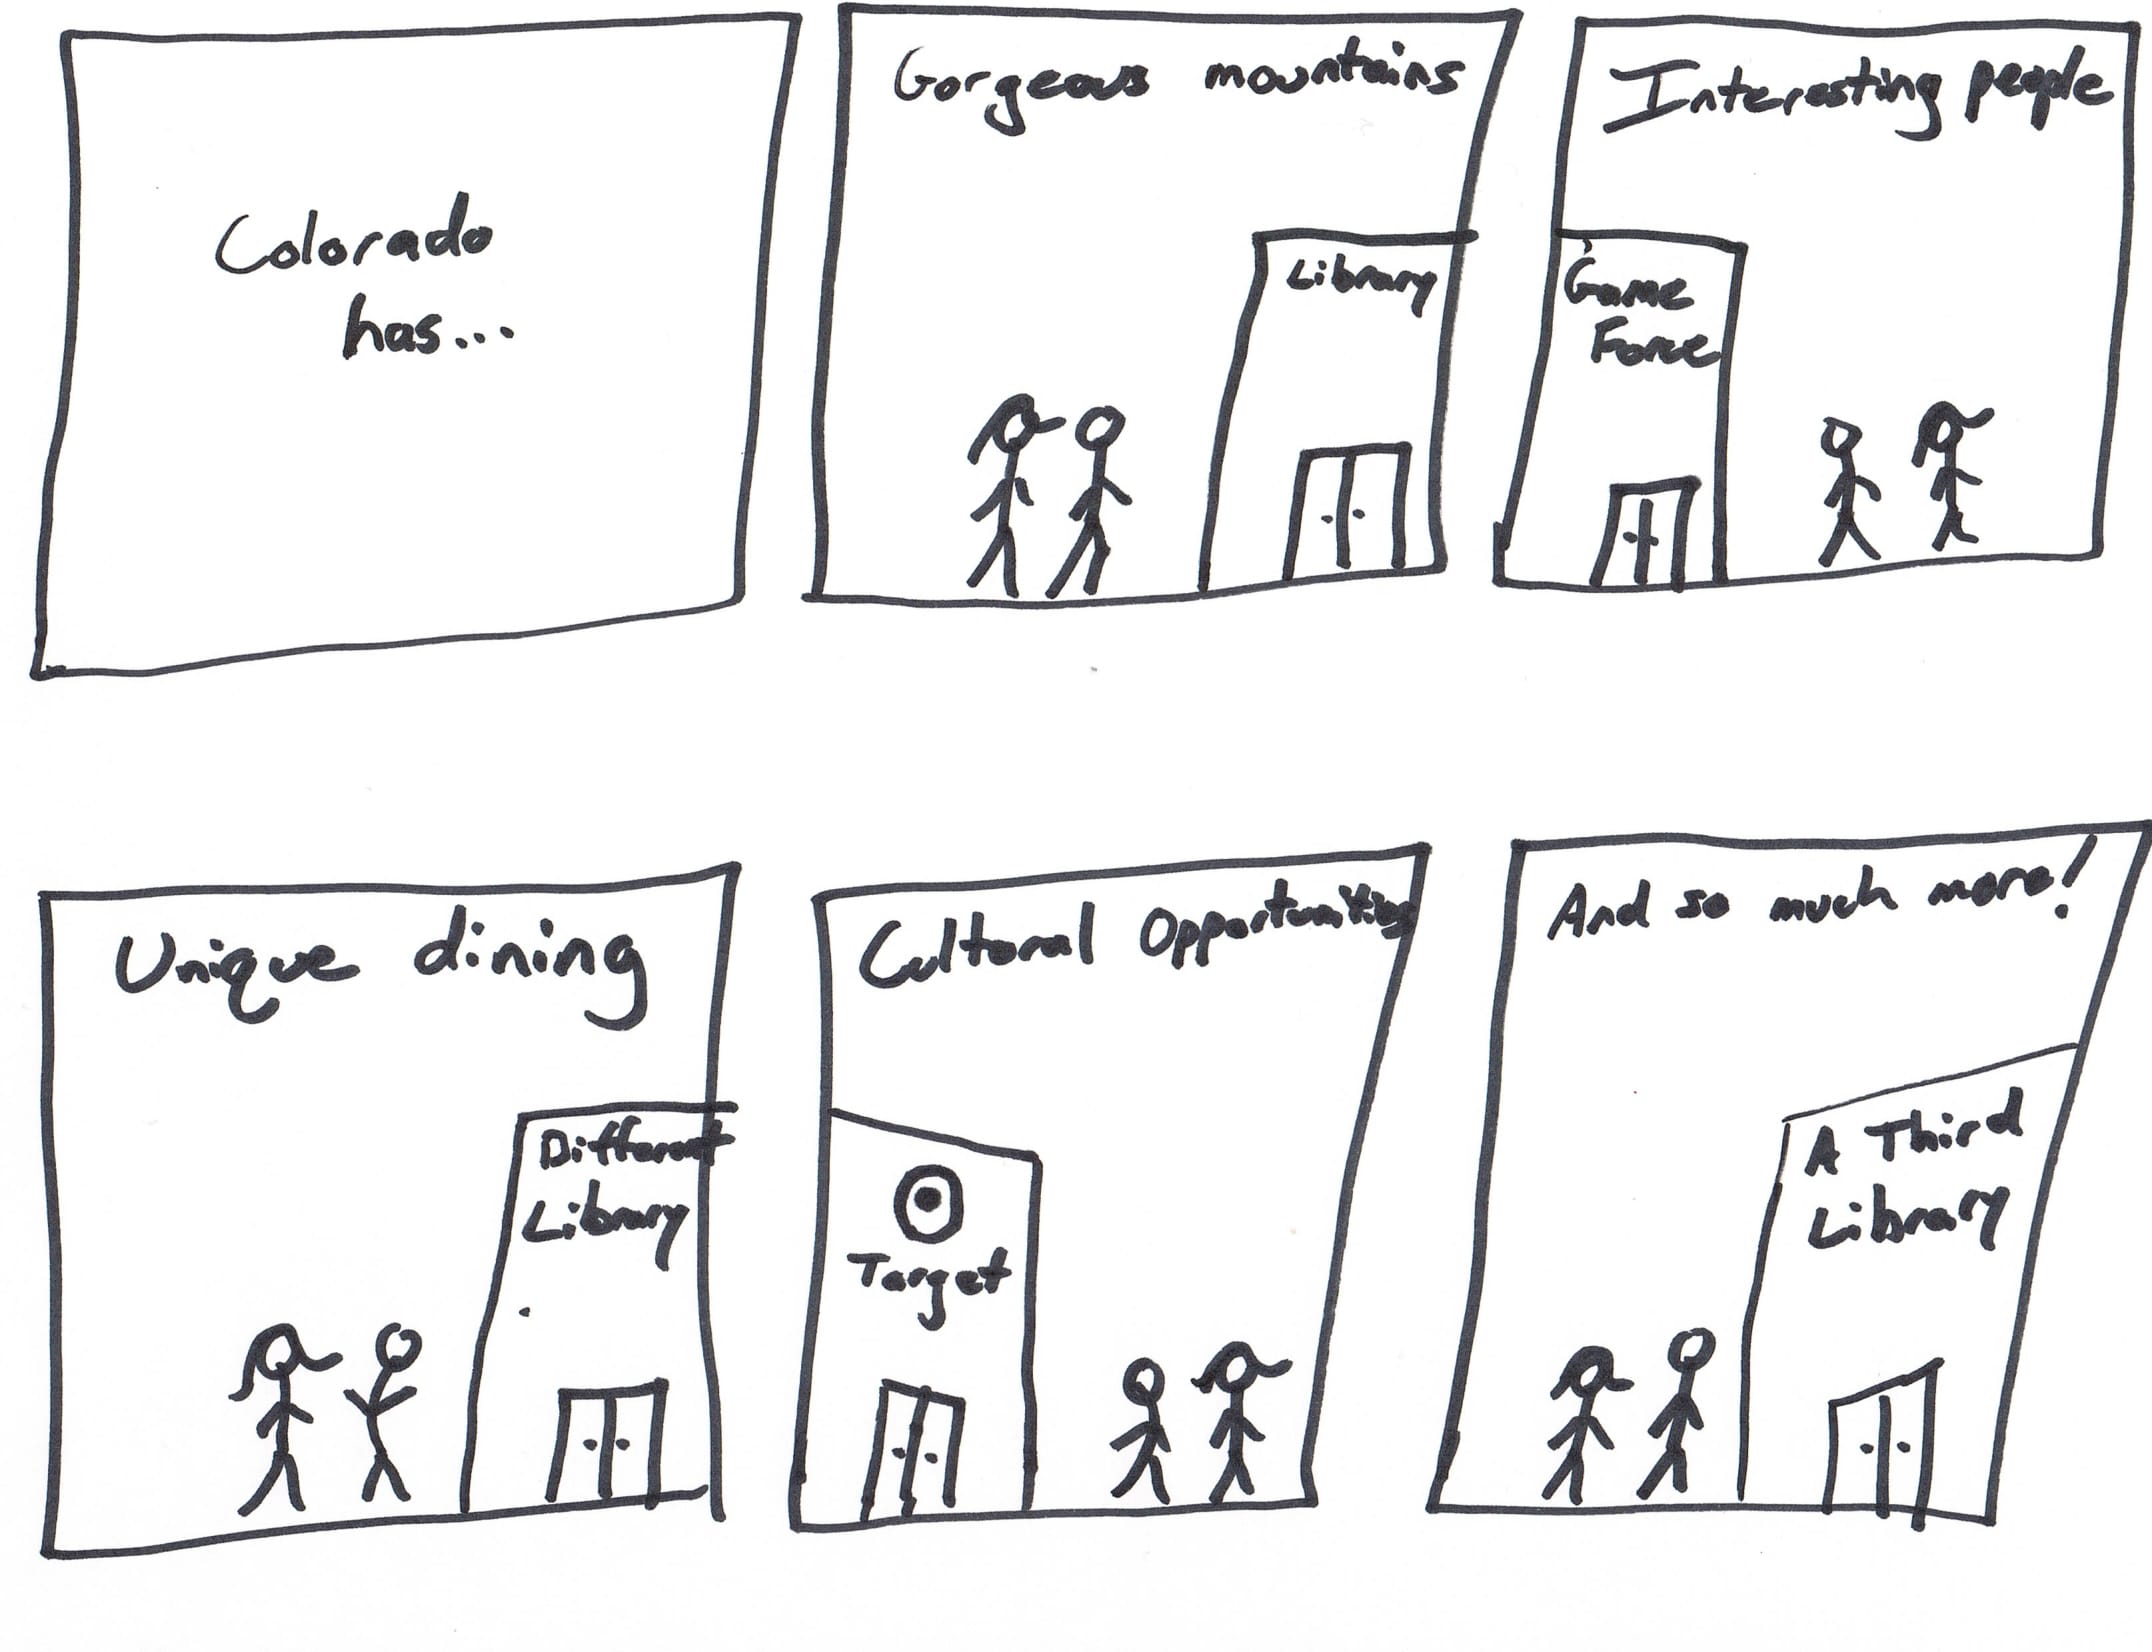 Colorado
has...
Gorgeous mountains
Library
Interesting people
Game
Force
Unique dining
Different
Library
Cultural Opportunities
Target
And so much more!
A Third
Library